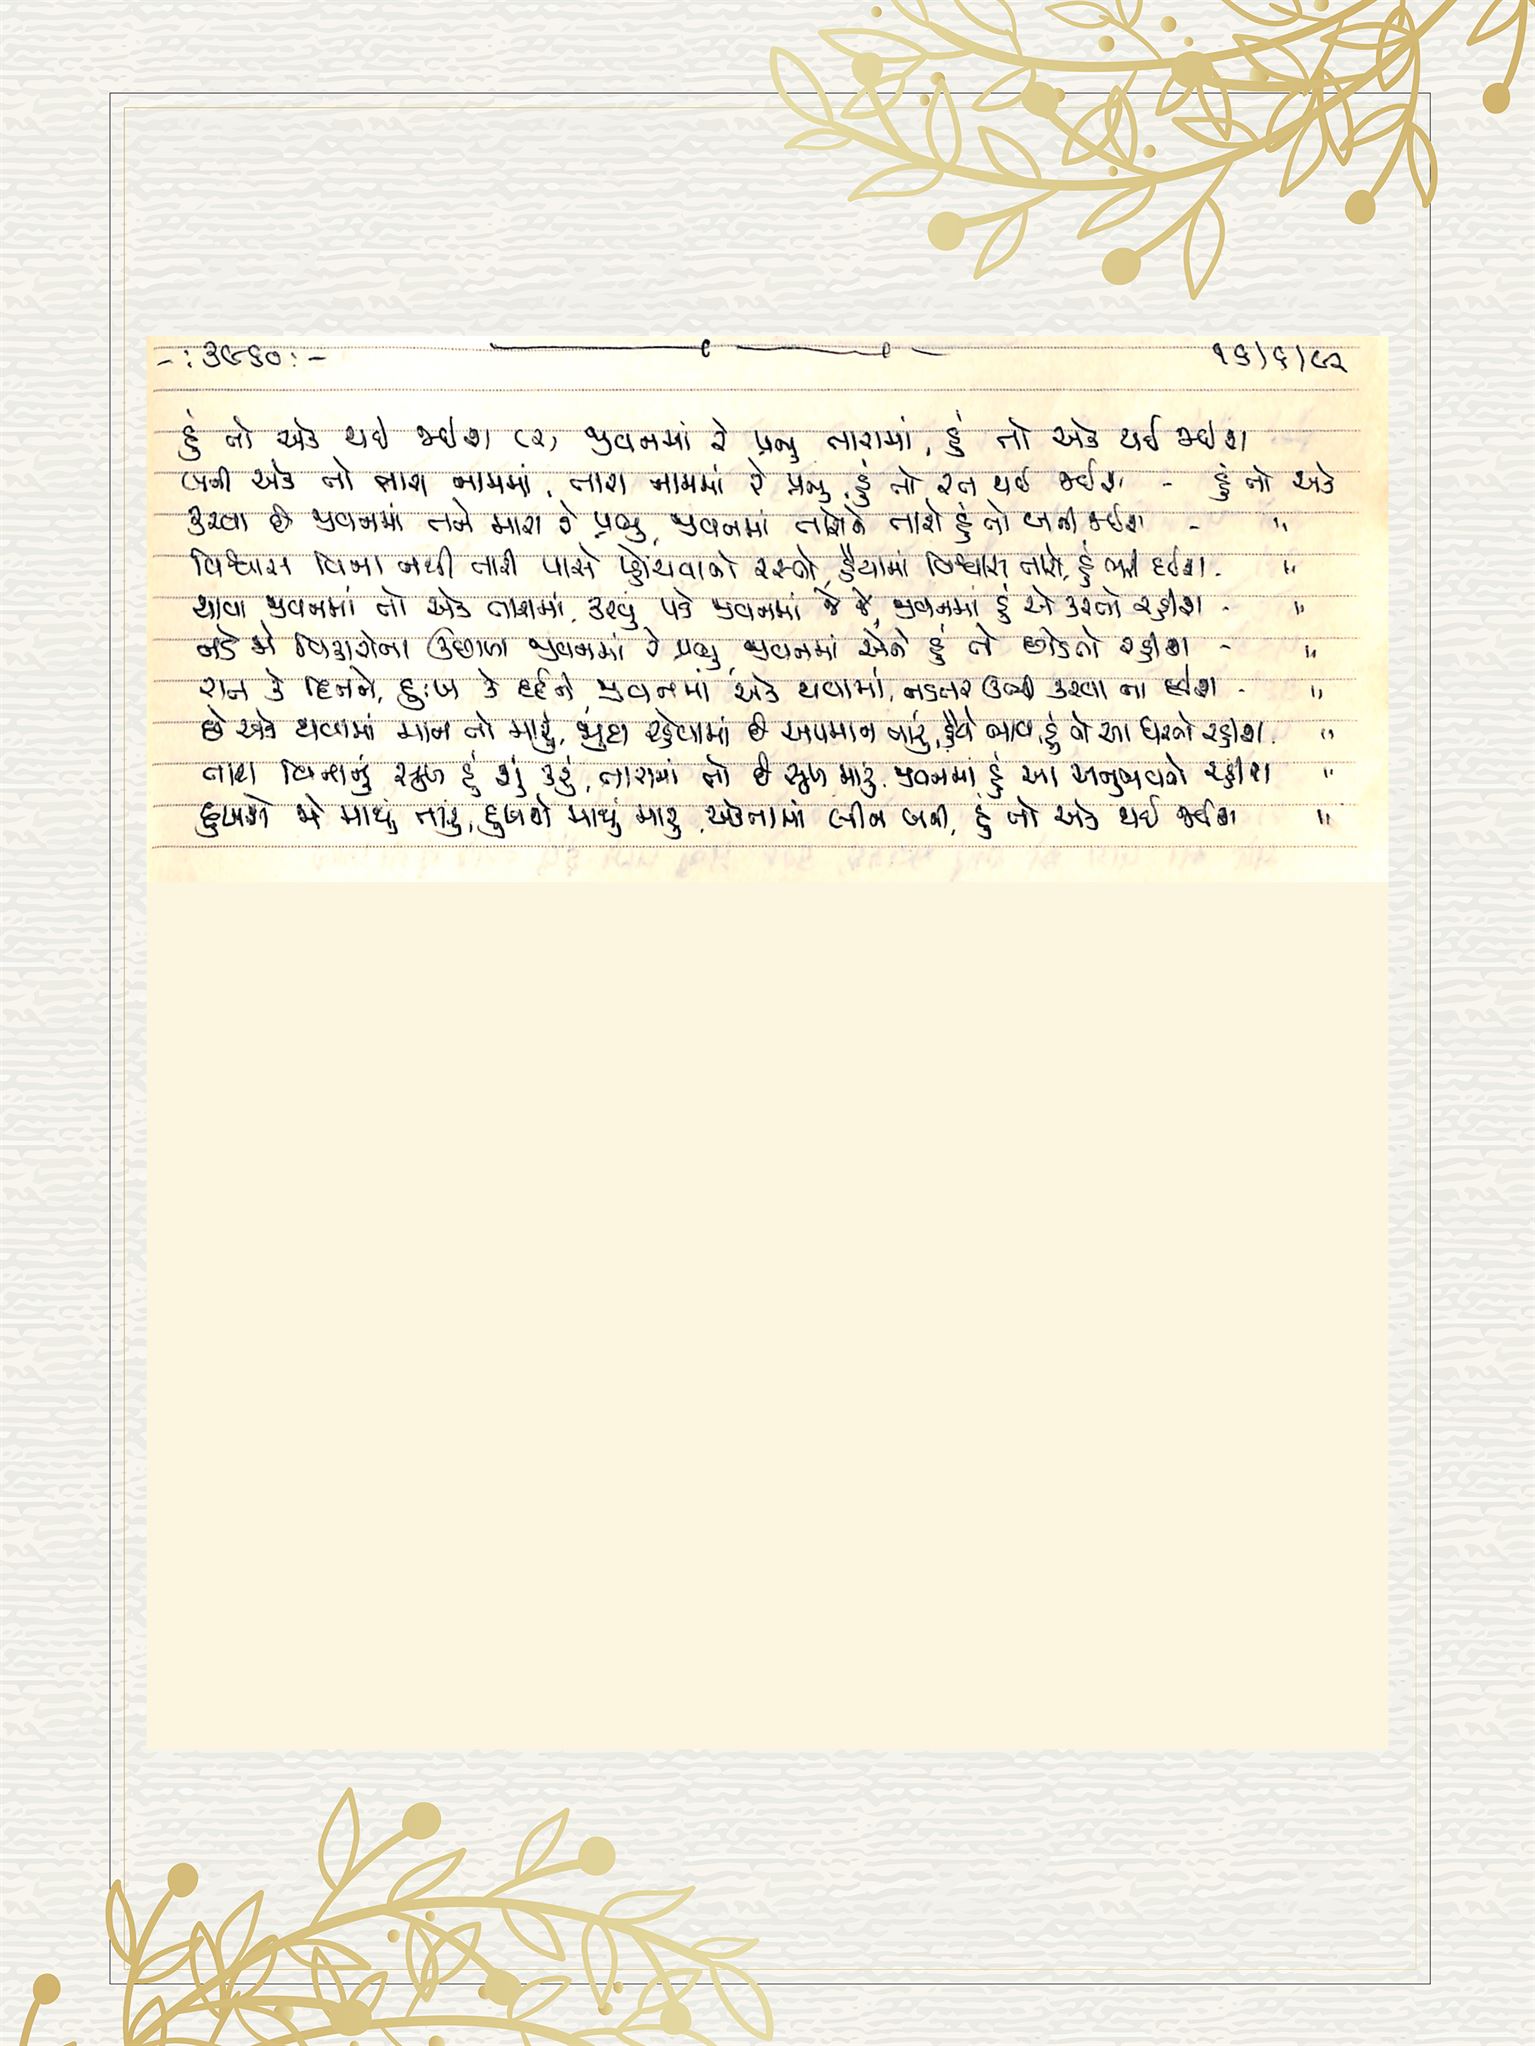 -: ૩૯૬૦ :- ૧૬/૬/૯૨
હું તો એક થઈ જઈશ (૨) જીવનમાં રે પ્રભુ તારામાં, હું તો એક થઈ જઈશ
બની એક તો તારા નામમાં, તારા નામમાં રે પ્રભુ, હું તો રત થઈ જઈશ - હું તો એક
કરવા છે જીવનમાં તને મારા રે પ્રભુ, જીવનમાં તારોને તારો હું તો બની જઈશ - "
વિશ્વાસ વિના નથી તારી પાસે પ્હોંચવાનો રસ્તો, હૈયામાં વિશ્વાસ તારો, હું ભરી દઈશ. "
થાવા જીવનમાં તો એક તારામાં, કરવું પડે જીવનમાં જે જે, જીવનમાં હું એ કરતો રહીશ - "
નડે જો વિકારોના ઉછાળા જીવનમાં રે પ્રભુ, જીવનમાં એને હું તો છોડતો રહીશ - "
રાત કે દિનને, દુઃખ કે દર્દને જીવનમાં એક થવામાં, નડતર ઊભી કરવા ના દઈશ - "
છે એક થવામાં માન તો મારું, જુદા રહેવામાં છે અપમાન તારું, હૈયે ભાવ, હું તો આ ધરતો રહીશ. "
તારા વિનાનું સુખ હું શું કરું, તારામાં તો છે સુખ મારું, જીવનમાં હું આ અનુભવતો રહીશ "
દુઃખશે જો માથું તારું, દુઃખશે માથું મારું, એકતામાં લીન બની, હું તો એક થઈ જઈશ "